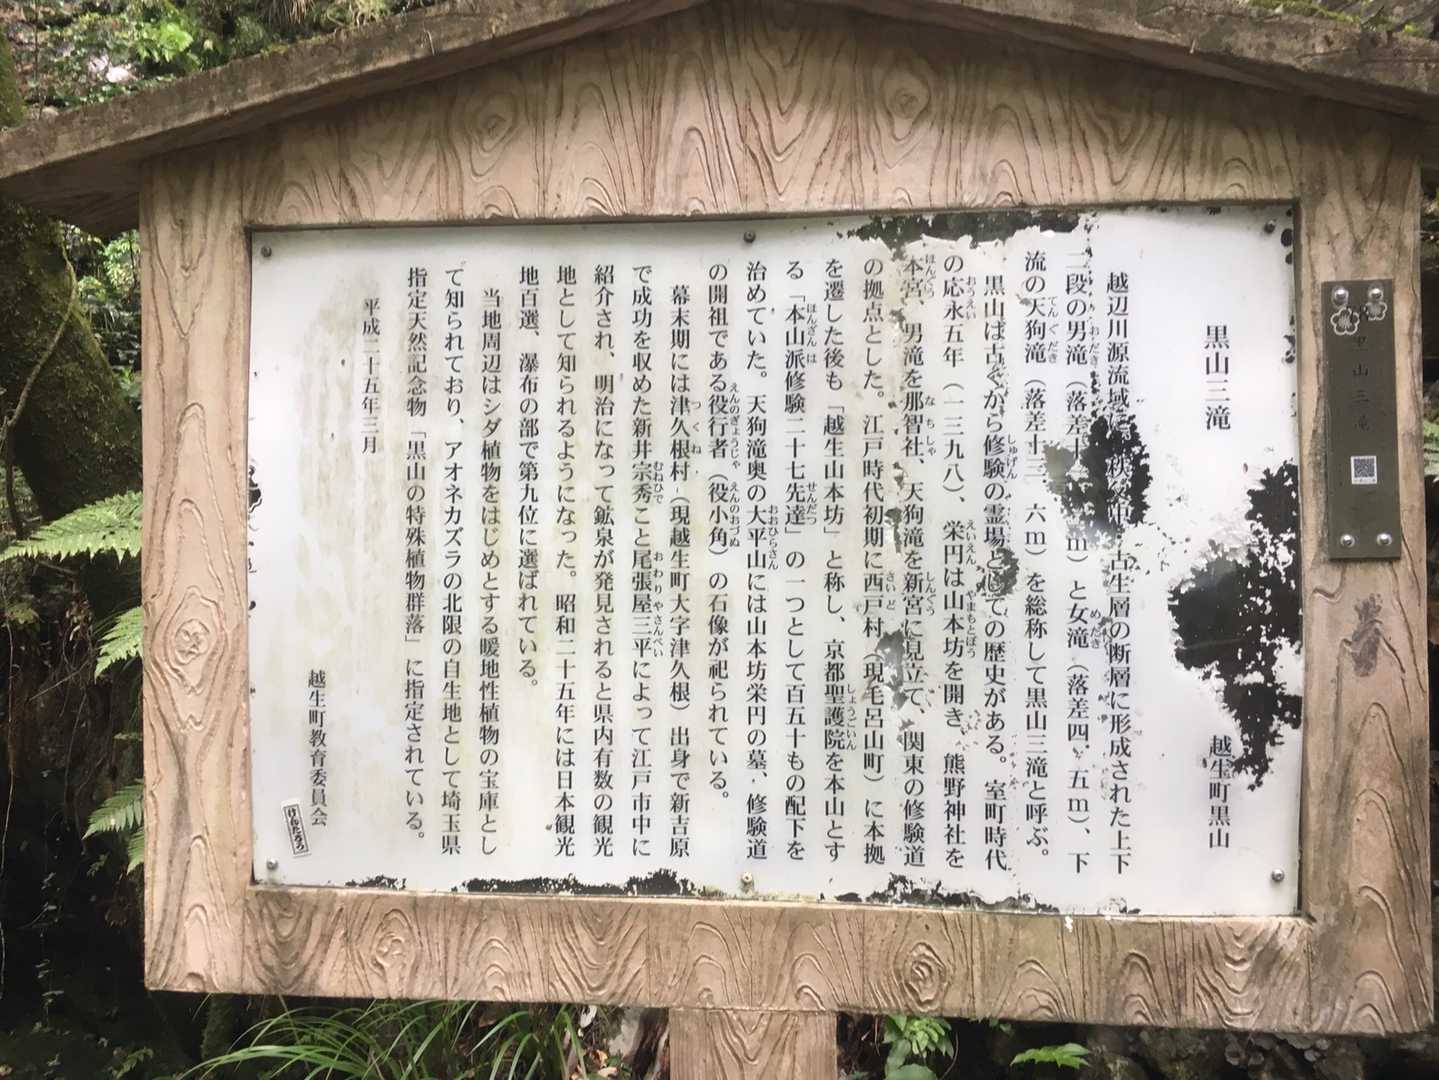 黒山三滝
越生町黒山
越辺川源流域に、秩父中・古生層の断層に形成された上下
二段の男滝（落差十 m）と女滝（落差四・五m）、下
流の天狗滝（落差十三・六m）を総称して黒山三滝と呼ぶ。
黒山は古くから修験の霊場としての歴史がある。室町時代
の応永五年（一三九八）、栄円は山本坊を開き、熊野神社を
本宮、男滝を那智社、天狗滝を新宮に見立て、関東の修験道
の拠点とした。江戸時代初期に西戸村（現毛呂山町）に本拠
を遷した後も「越生山本坊」と称し、京都聖護院を本山とす
る「本山派修験二十七先達」の一つとして百五十もの配下を
治めていた。天狗滝奥の大平山には山本坊栄円の墓、修験道
の開祖である役行者（役小角）の石像が祀られている。
幕末期には津久根村（現越生町大字津久根）出身で新吉原
で成功を収めた新井宗秀こと尾張屋三平によって江戸市中に
紹介され、明治になって鉱泉が発見されると県内有数の観光
地として知られるようになった。昭和二十五年には日本観光
地百選、瀑布の部で第九位に選ばれている。
当地周辺はシダ植物をはじめとする暖地性植物の宝庫とし
て知られており、アオネカズラの北限の自生地として埼玉県
指定天然記念物「黒山の特殊植物群落」に指定されている。
平成二十五年三月
越生町教育委員会
黒山三滝